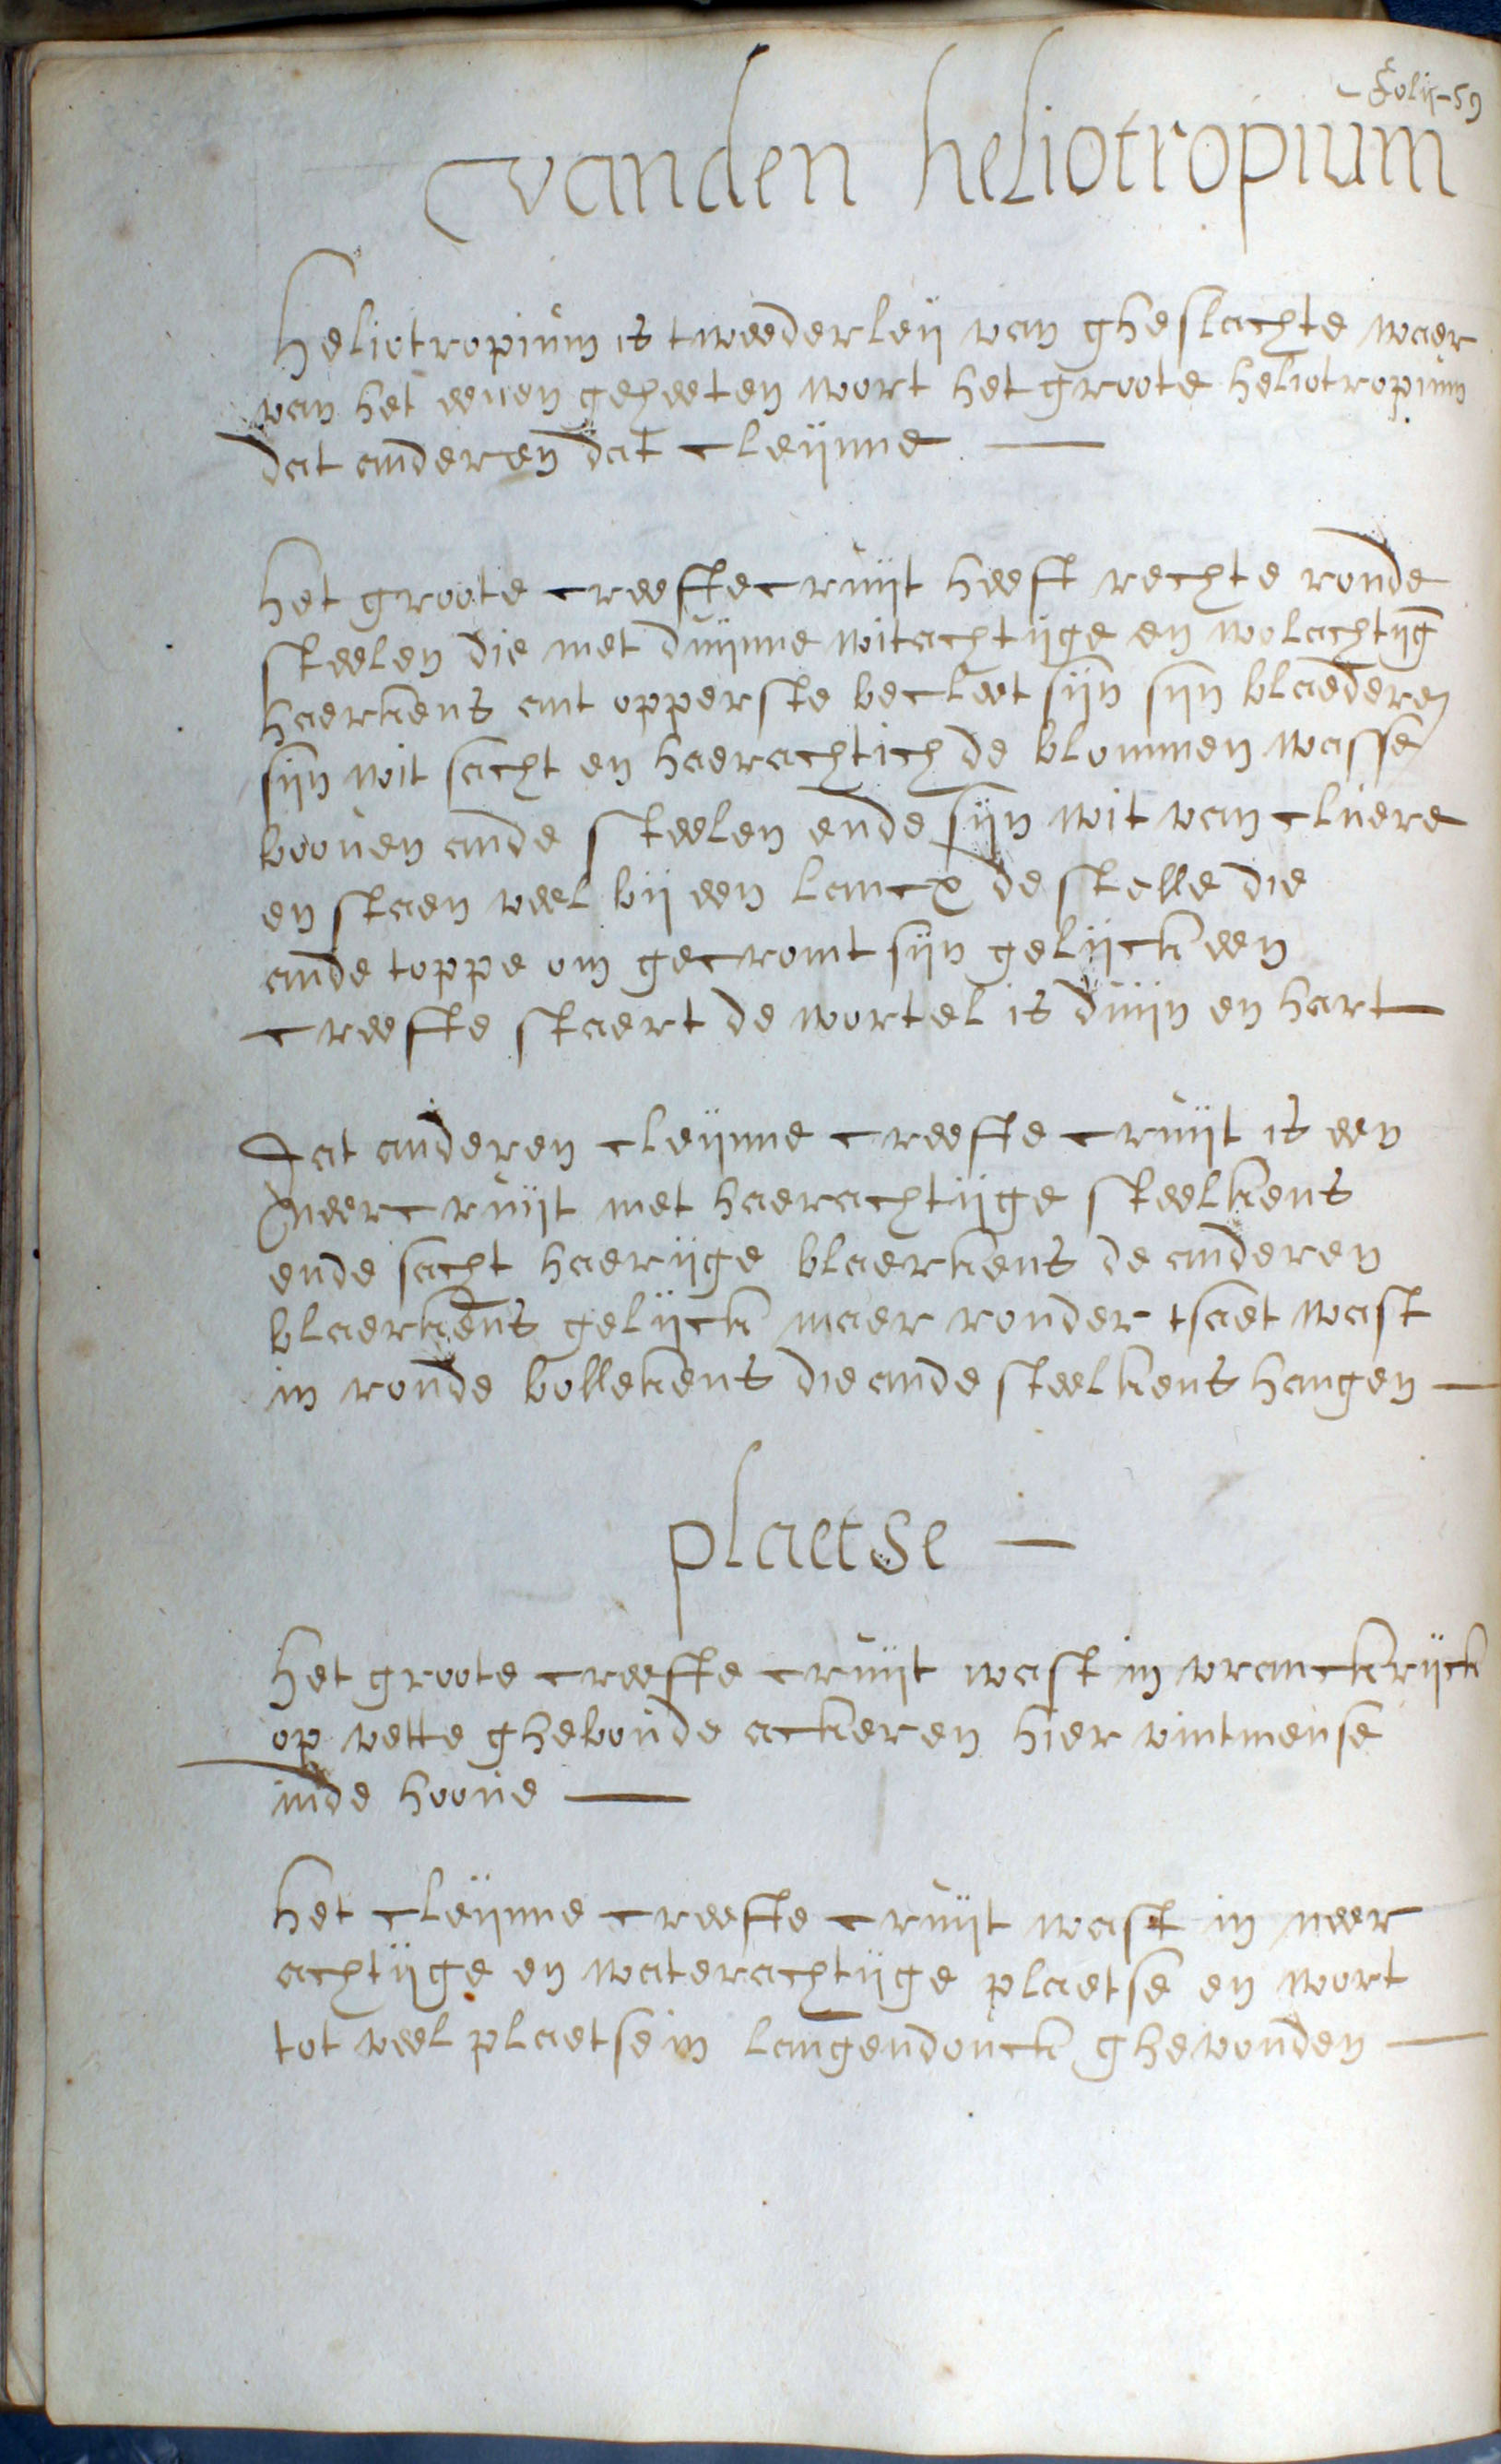 Folij-59
vanden heliotropium
Heliotropium is tweederleij van gheslachte waer
van het eenen geheeten wort het groote heliotropium
dat anderen dat cleijnne —
het groote creefte cruijt heeft rechte ronde
steelen die met duijnne witachtijge en wolachtijg
haerkens ant opperste becleet sijn sijn blaederen
sijn wit sacht en haerachtich de blommen wassen
booven ande steelen ende sijn wit van cluere
en staen veel bij een lancx de stelle die
ande toppe om gecromt sijn gelijck een
creefte staert de wortel is duijn en hart
Dat anderen cleijnne creefte cruijt is een
meercruijt met haerachtijge steelkens
ende sacht haerijge blaerkens de anderen
blaerkens gelijck maer ronder tsaet wast
in ronde bollekens die ande steelkens hangen —
plaetse —
het groote creefte cruijt wast in vranckrijck
op vette gheboude ackeren hier vintmense
inde hoove —
het cleijnne creefte cruijt wast in meer
achtijge en waterachtijge plaetse en wort
tot veel plaetse in langendonck ghevonden —